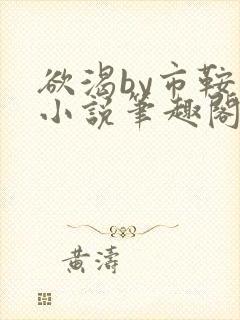 欲渴by市鞍
小説筆趣閣
黃濤